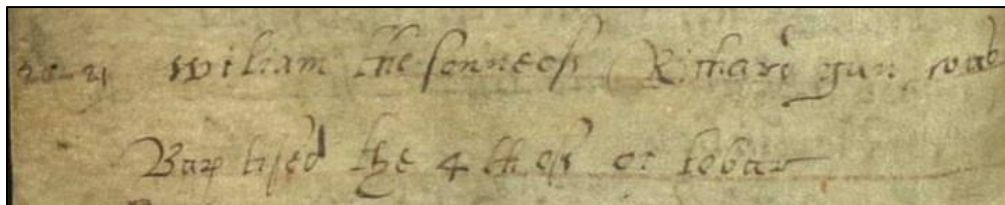 20-21 wiliam the sonne of Richard gun was
Baptised the 4 th of october